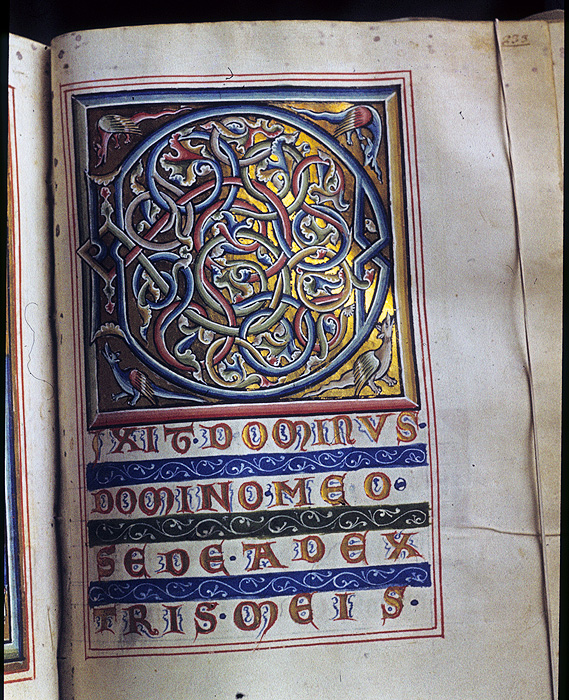 DIXIT·DOMINVS·
DOMINO·MEO·
SEDE·ADEX
TRIS·MEIS·